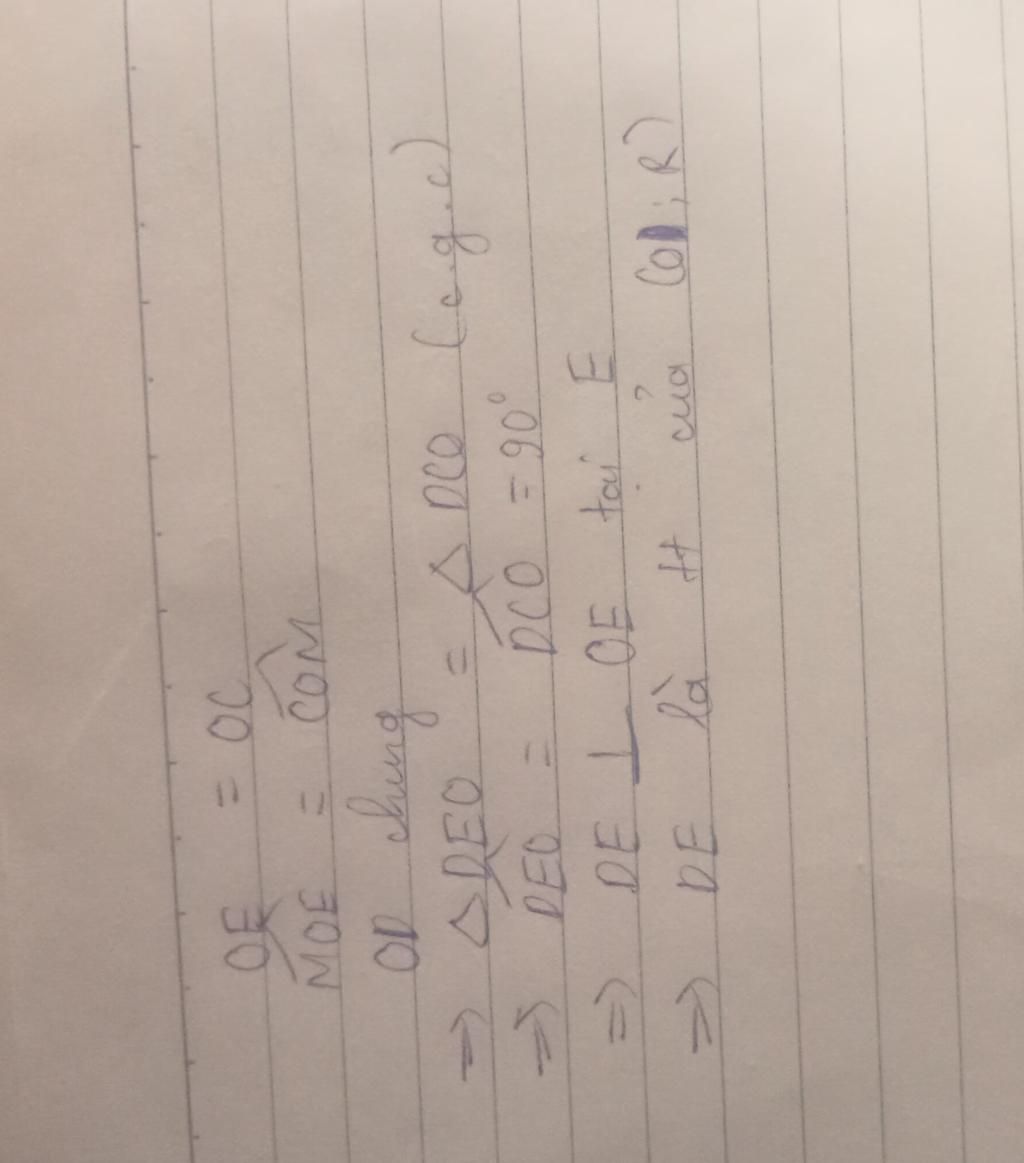 OE = OC
$\widehat{MOE}$ = $\widehat{COM}$
OD chung
=> ΔDEO = ΔDCO (c.g.c)
=> $\widehat{DEO}$ = $\widehat{DCO}$ = 90°
=> DE ⊥ OE tại E
=> DE là tt của (O; R)